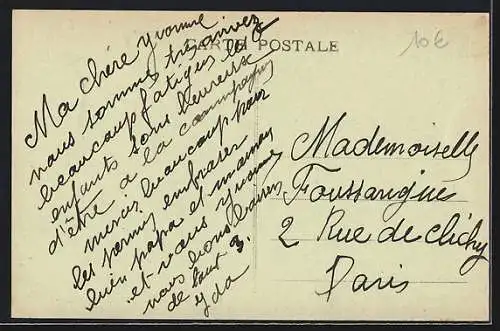 CARTE POSTALE
10€
Ma chère Yvonne
nous sommes très arrivez
beaucoup fatigues les
enfants sons heureux
d'être a la campagny
mercis beaucoup pour
les permis embrasser
bien papa et maman
et vous Yvonne
nous vous
de tout
yda
Mademoiselle
Foussarigue
2 Rue de clichy
Paris